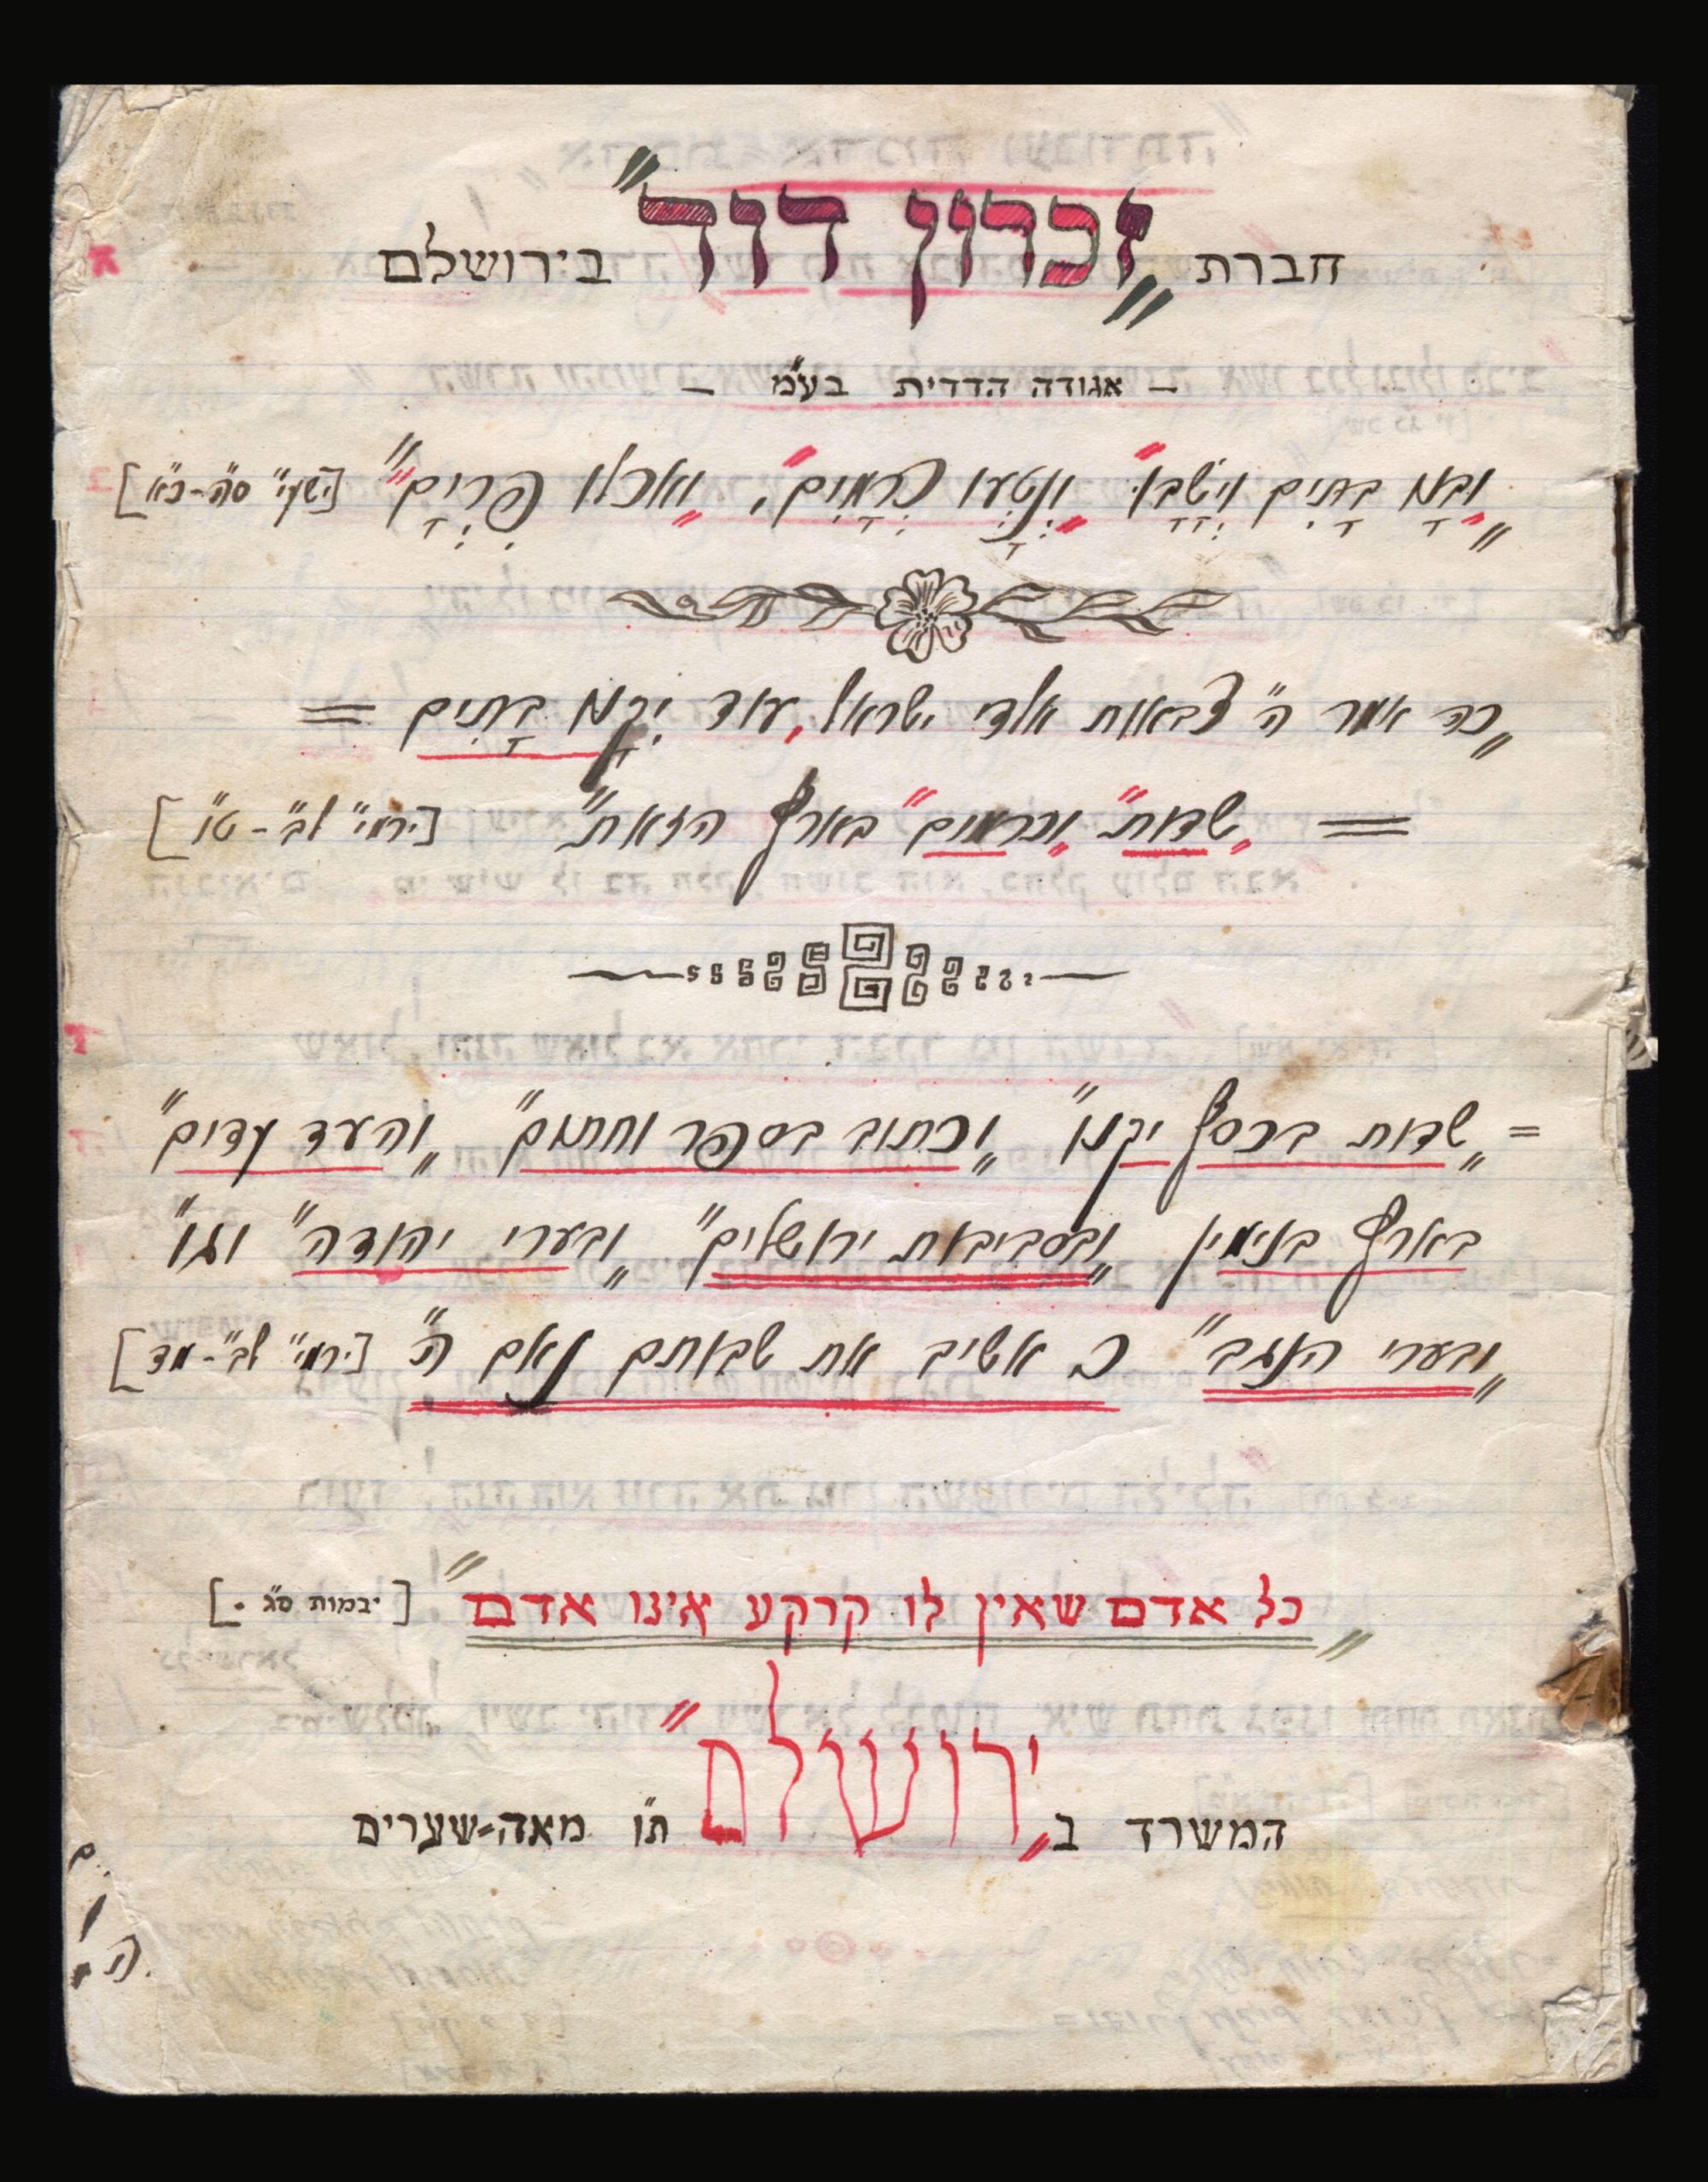 חברת „זכרון דוד" בירושלם
– אגודה הדדית בע"מ –
„ובנו בתים וישבו" „ונטעו כרמים", „ואכלו פרים" [ישעי' ס"ה-כ"א]
„כה אמר ה' צבאות אלהי ישראל, עוד יקנו בתים =
= „שדות" „וכרמים" בארץ הזאת" [ירמי' ל"ב-ט"ו]
= „שדות בכסף יקנו" „וכתוב בספר וחתום" „והעד עדים"
בארץ בנימין „ובסביבות ירושלים" „ובערי יהודה" וגו'
„ובערי הנגב" כי אשיב את שבותם נאם ה' [ירמי' ל"ב-מד]
„כל אדם שאין לו קרקע אינו אדם" [יבמות ס"ג.]
המשרד ב„ירושלם" ת"ו מאה-שערים